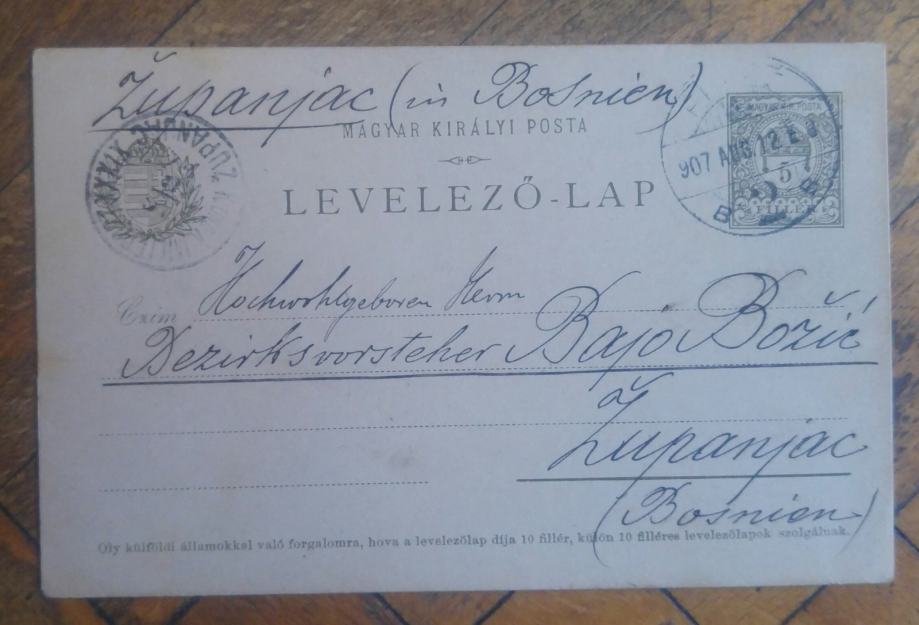 Županjac (in Bosnien)
MAGYAR KIRÁLYI POSTA
LEVELEZŐ-LAP
MAGYAR KIR. POSTA
5
FILLÉR
907 AUG 12 E 8
B
ŽUPANJAC
Czím
Hochwohlgeboren Herrn
Bezirksvorsteher Bajo Božić
Županjac
(Bosnien)
Oly külföldi államokkal való forgalomra, hova a levelezőlap díja 10 fillér, külön 10 filléres levelezőlapok szolgálnak.